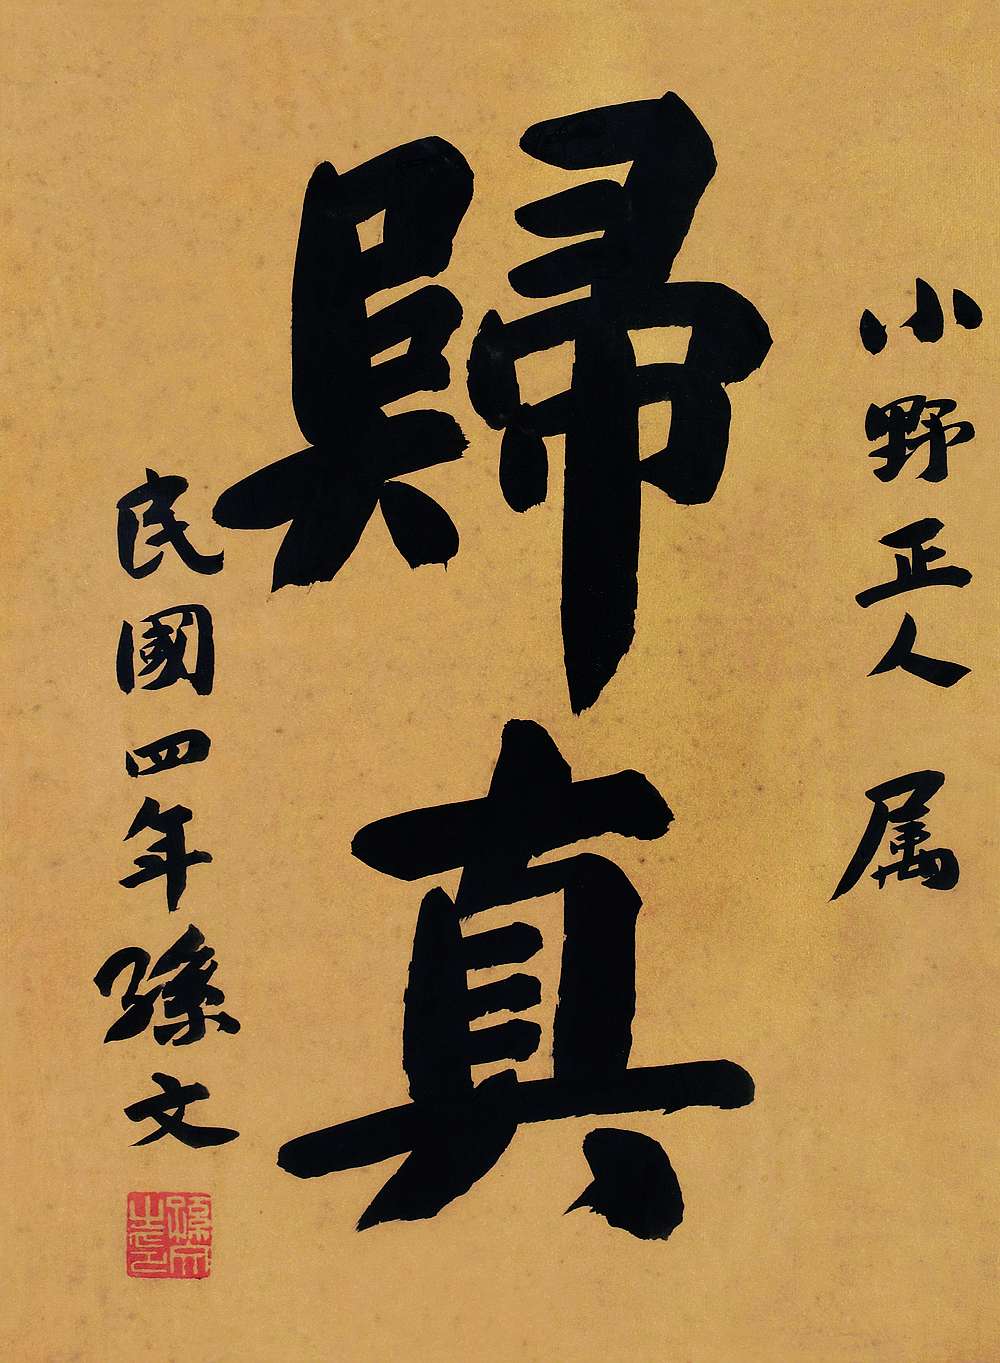 小野正人 属
歸真
民國四年孫文
孫文之印